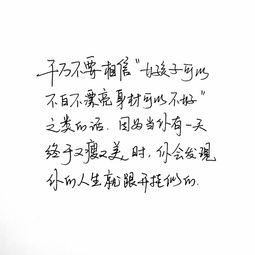 千万不要相信“女孩子可以
不白不漂亮身材可以不好”
之类的话.因为当你有一天
终于又瘦又美,时,你会发现
你的人生就跟开挂似的.